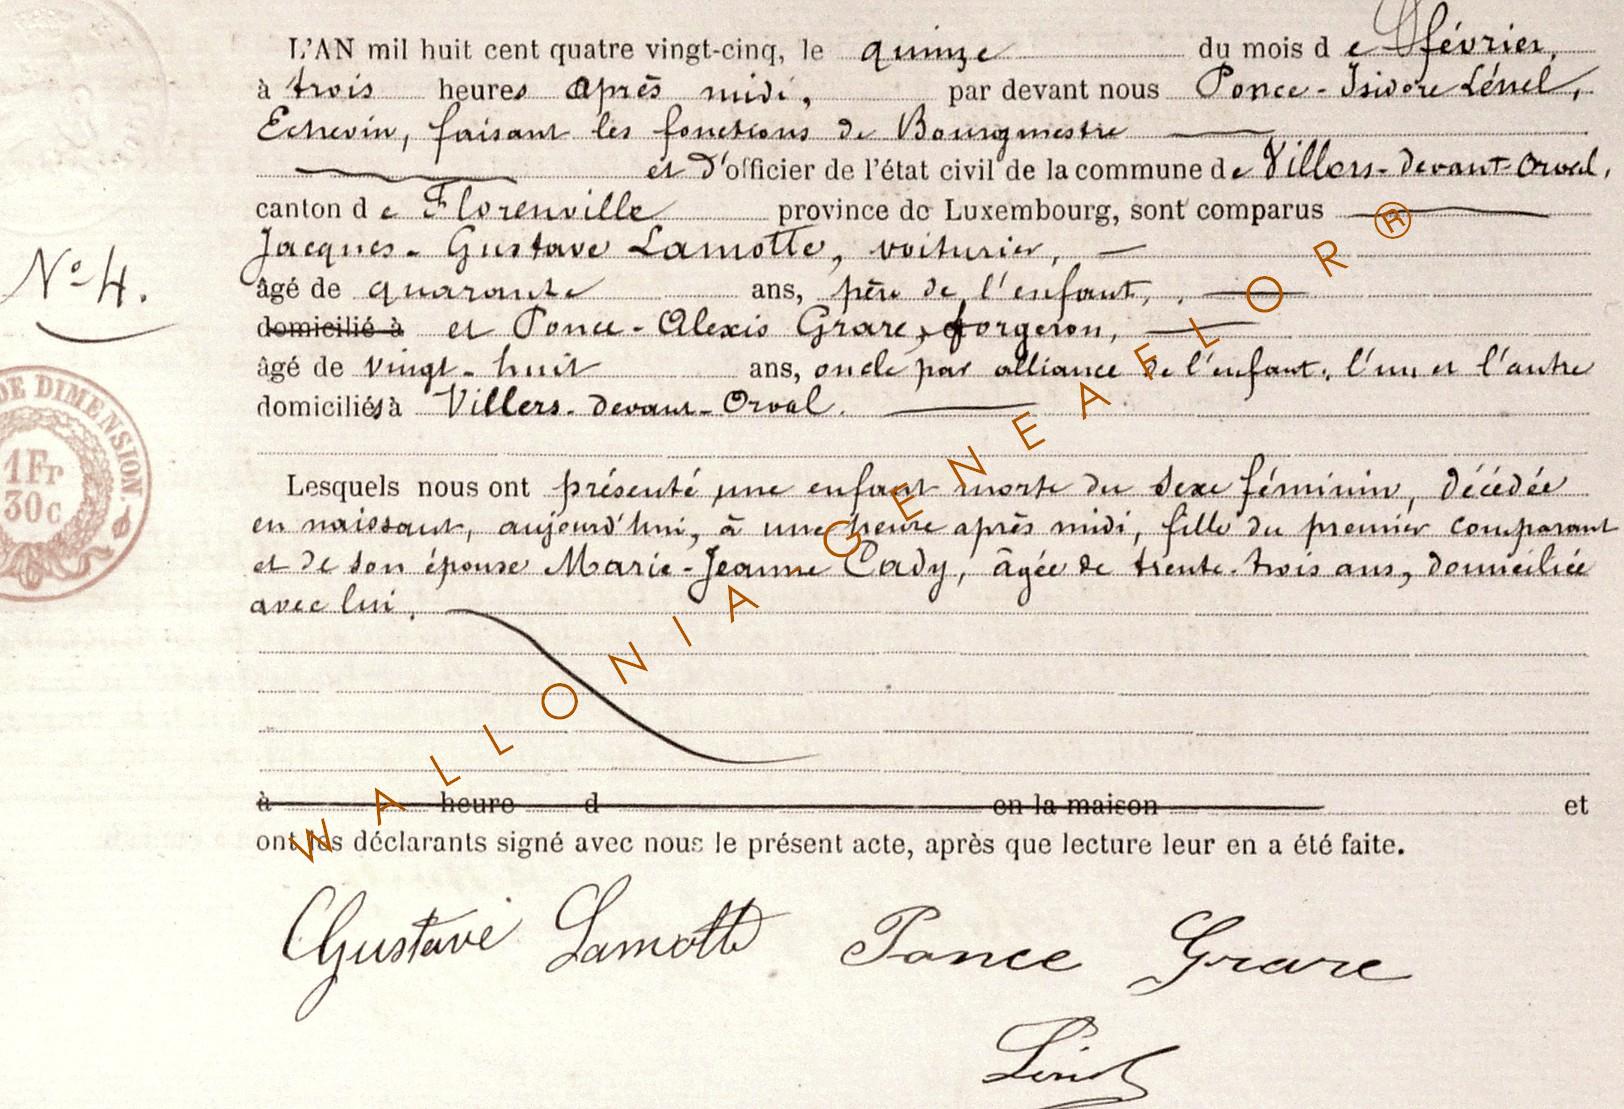 L'AN mil huit cent quatre vingt-cinq, le quinze du mois de février,
à trois heures après midi, par devant nous Ponce-Isidore Lénel,
Echevin, faisant les fonctions de Bourgmestre
et d'officier de l'état civil de la commune de Villers-devant-Orval,
canton de Florenville province de Luxembourg, sont comparus
Jacques-Gustave Lamotte, voiturier,
N° 4.
âgé de quarante ans, père de l'enfant,
domicilié à et Ponce-Alexis Grare, forgeron,
âgé de vingt-huit ans, oncle par alliance de l'enfant, l'un et l'autre
domiciliés à Villers-devant-Orval.
DE DIMENSION.
1Fr
30c
Lesquels nous ont présenté une enfant morte du sexe féminin, décédée
en naissant, aujourd'hui, à une heure après midi, fille du premier comparant
et de son épouse Marie-Jeanne Cady, âgée de trente-trois ans, domiciliée
avec lui.
à heure d en la maison et
ont les déclarants signé avec nous le présent acte, après que lecture leur en a été faite.
Gustave Lamotte Ponce Grare
WALLONIA GENEAFLOR ®